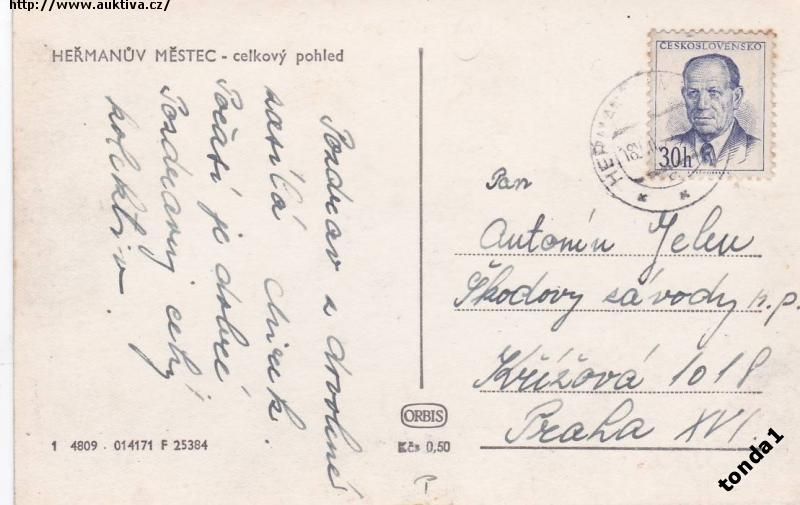 http://www.auktiva.cz/
HEŘMANŮV MĚSTEC - celkový pohled
Pozdrav z dovolené
zasílá
Počasí je dobré
Pozdravuj celý
kolektiv.
ČESKOSLOVENSKO
30h
Pan
Antonín Jelen
Škodovy závody n.p.
Křížová 1018
Praha XVI.
ORBIS
Kčs 0,50
1 4809 - 014171 F 25384
tonda1